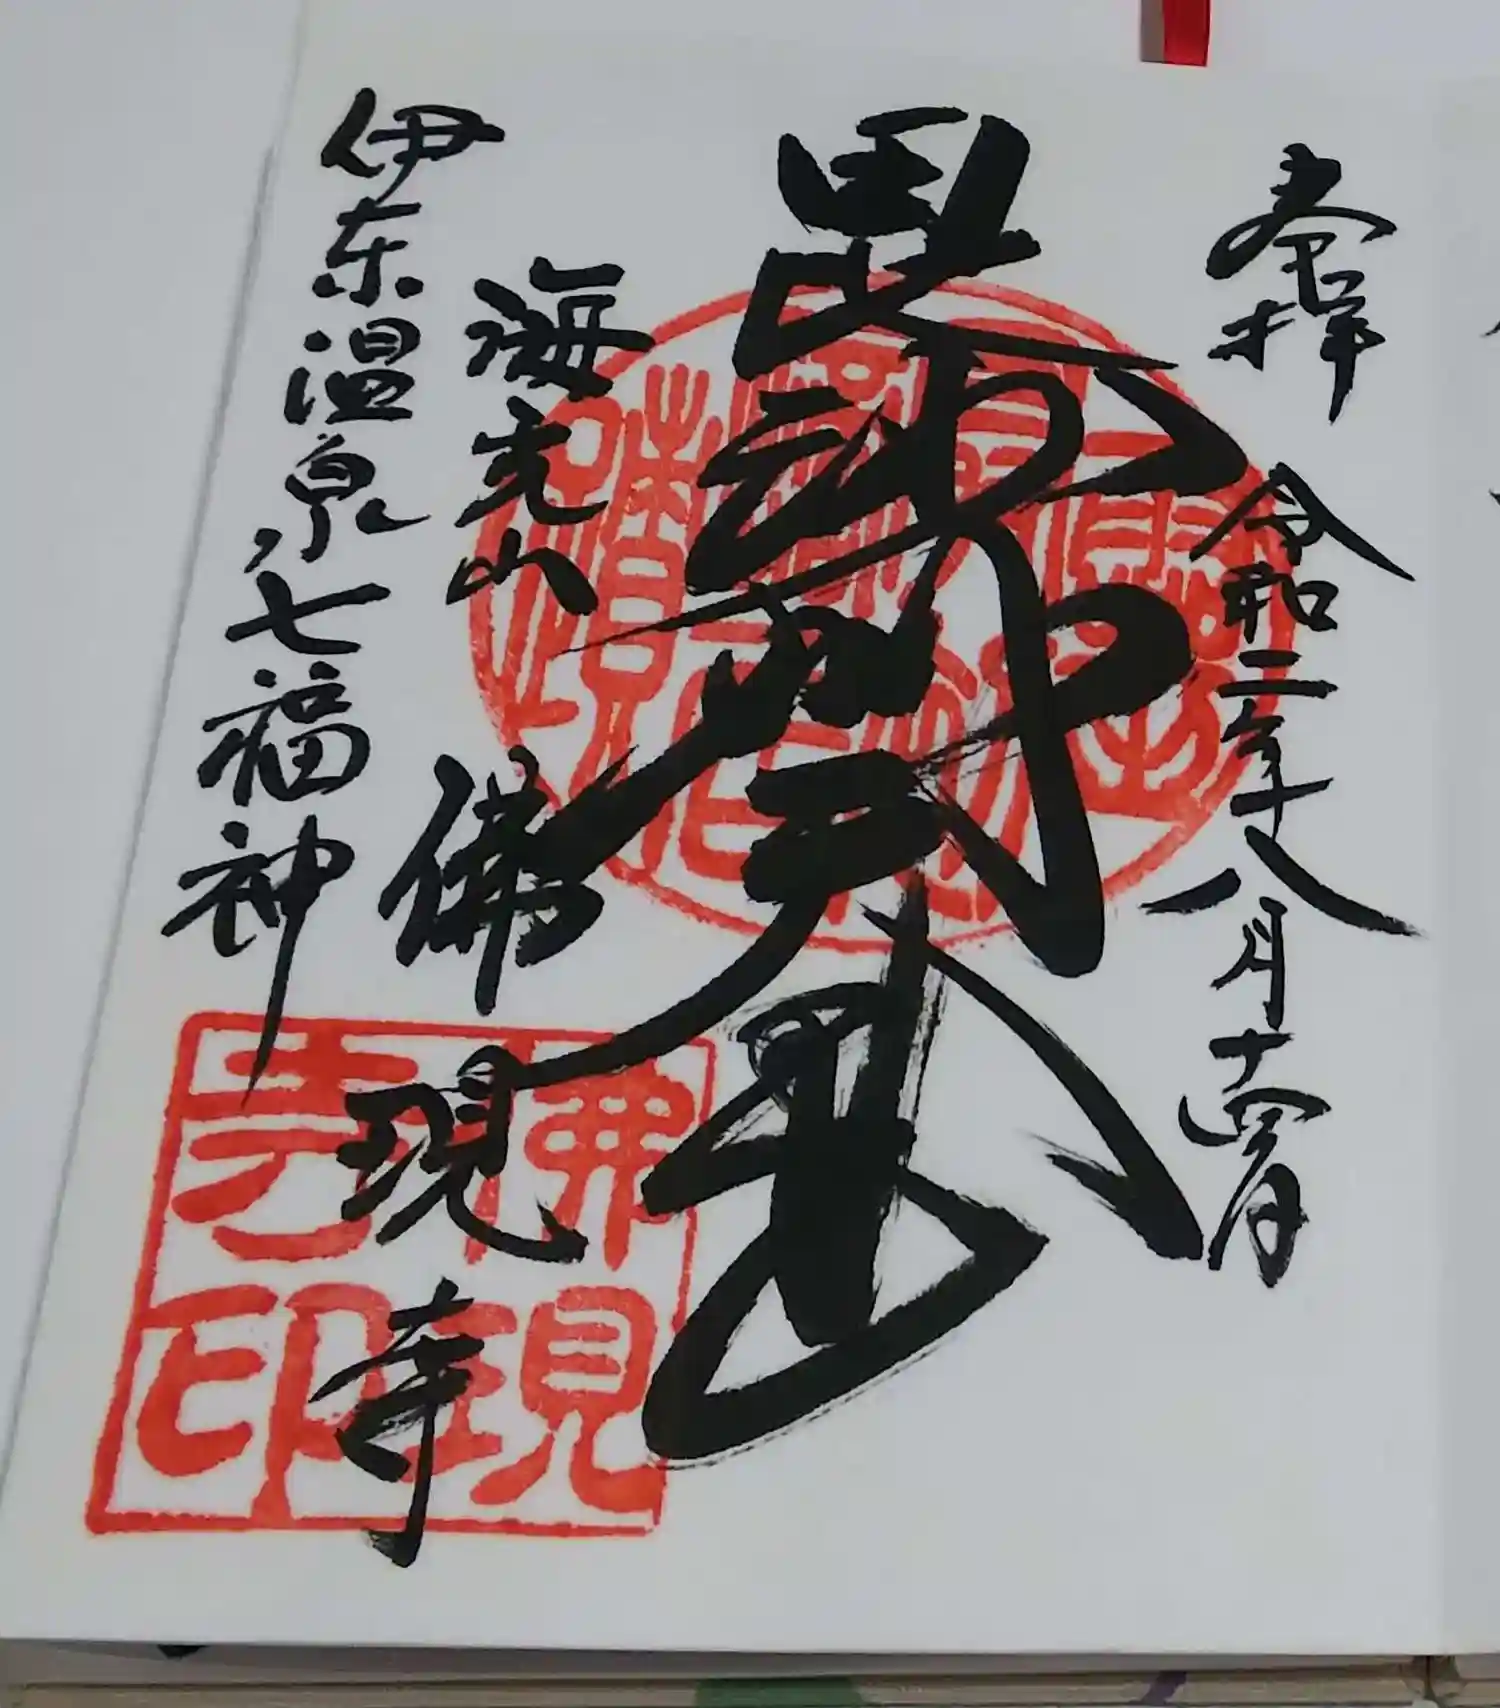 奉拝 令和二年八月十四日
毘沙門天
海光山 佛現寺
伊东温泉七福神
佛現
寺印